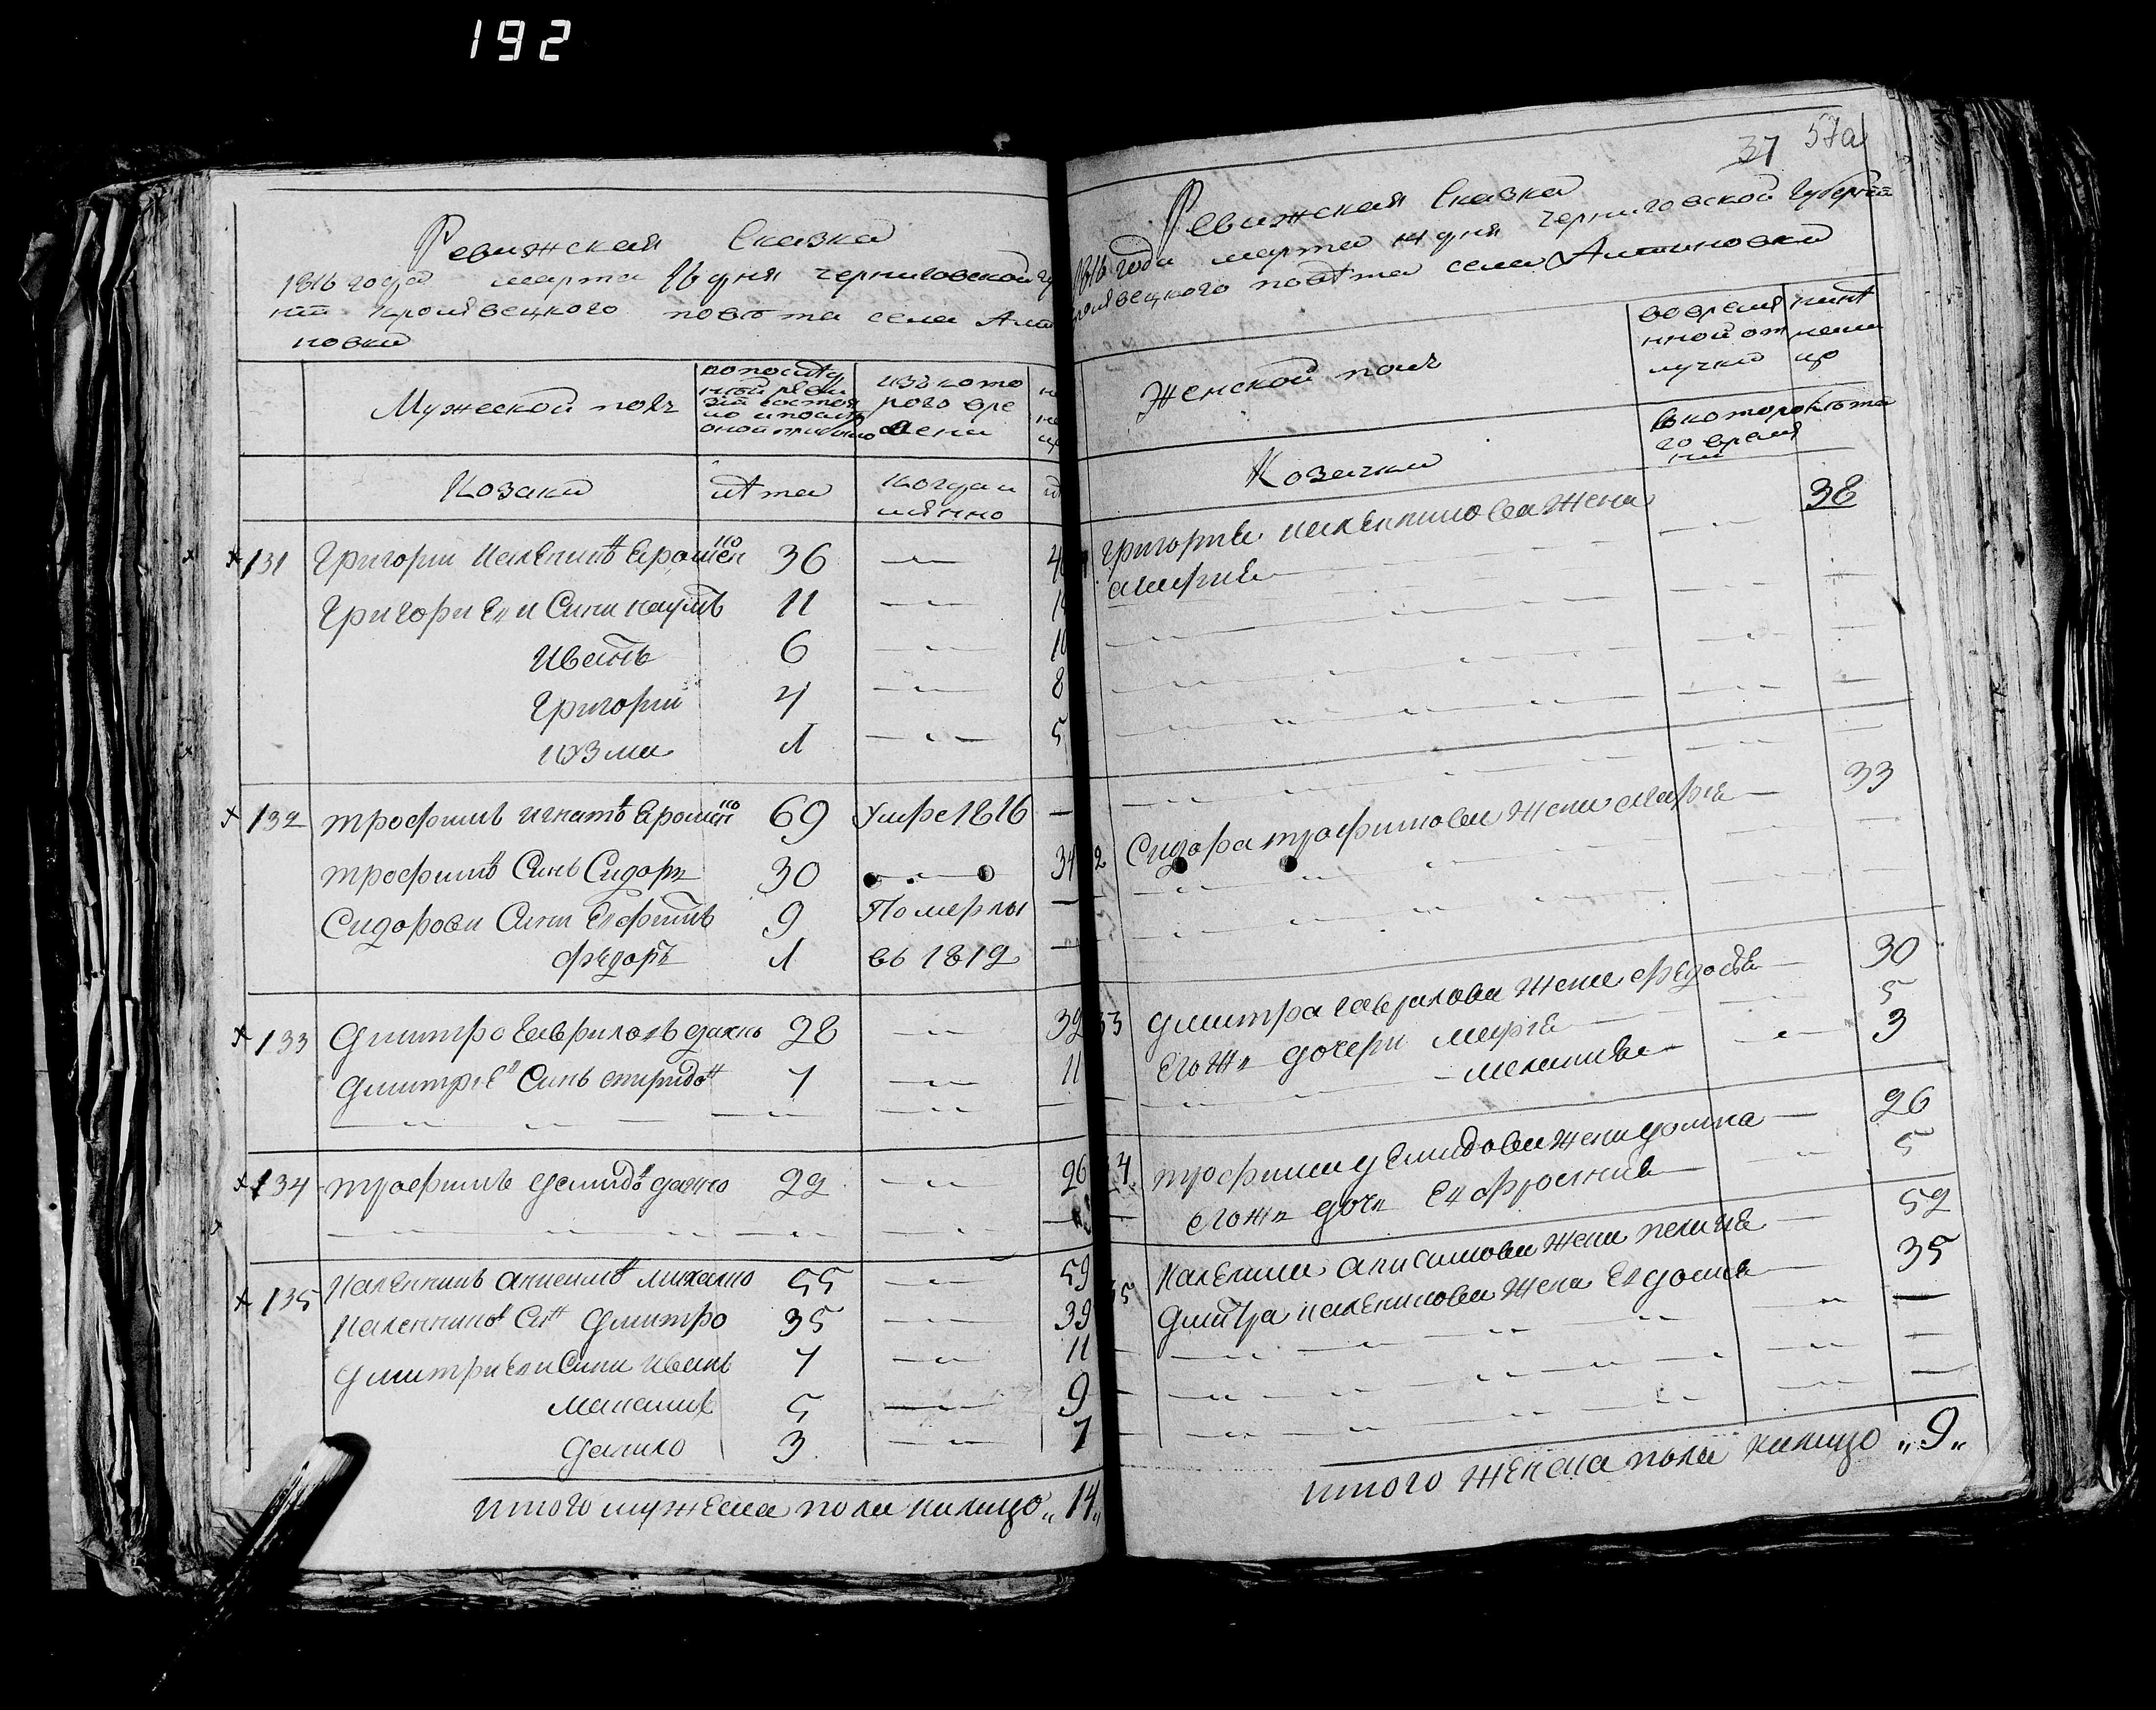 192
Ревижская Сказка
1816 года марта дня черниговской гу
нїи кролявецкого повѣта села Алти
новки
Мужеской полъ
изъ кото
рого вре
мени
Козаки
лѣта
когда и
мянно
131 Григории Калениковъ Ярошенко 36 4
Григориеви Сини Наумъ 11
Иванъ 6 10
Григории 4 8
Козма 1 5
132 трофимъ игнатовъ Ярошенко 69 Умре 1816
трофимовъ Синъ Сидоръ 30 34
Сидорови Сини Евфимъ 9 Померлы
Федоръ 1 въ 1812
133 Дмитро Гавриловъ дахно 28 32
Дмитриевъ Синъ спиридонъ 7 11
134 трофимъ демидовъ дахно 22 26
135 Каленникъ анисимовъ михалко 55 59
Каленниковъ Синъ Дмитро 35 39
Дмитриеви Сини иванъ 7 11
5 9
Данило 3 7
итого мужеска пола налицо „14„
37 57а
Ревижская Сказка
1816 года марта дня черниговской Губернїи
кролявецкого повѣта села Алтиновки
Женской полъ
во время
нной от
лучки
налицо
Козачки
в которо
го время
ни
лѣта
Григория каленикова жена
38
мария
2 Сидора трофимова жена марья 33
33 Дмитра гаврилова жена федосия 30
Егожъ дочери мария 5
мелания 3
34 трофима демидова жена домна 26
егожъ дочъ Евфросиния 5
35 Каленика анисимова жена пелагия 52
Дмитра каленикова жена Евдокия 35
итого женска пола налицо „9„